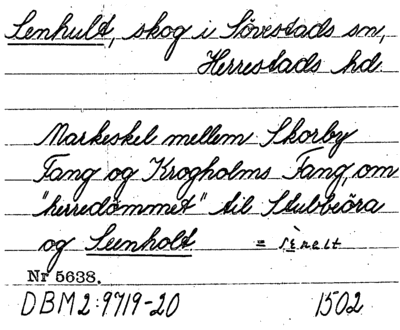 Senhult, skog i Sövestads sn,
Herrestads hd.
Markeskel mellem Skorby
Fang og Krogholms Fang, om
"herredömmet" til Stubbeöra
og Seenholt =
Nr 5638.
DBM2:9719-20 1502